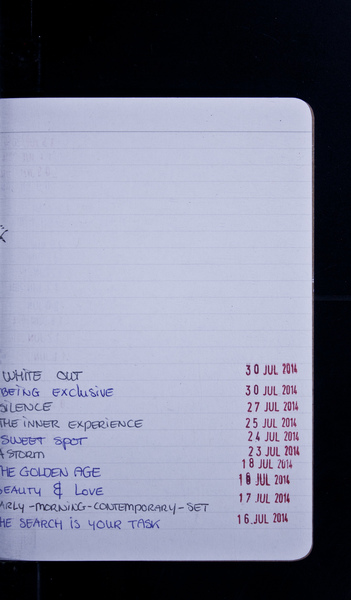 WHITE OUT 30 JUL 2014
BEING EXCLUSIVE 30 JUL 2014
SILENCE 27 JUL 2014
THE INNER EXPERIENCE 25 JUL 2014
SWEET SPOT 24 JUL 2014
A STORM 23 JUL 2014
HE GOLDEN AGE 18 JUL 2014
BEAUTY & LOVE 18 JUL 2014
ARLY-MORNING-CONTEMPORARY-SET 17 JUL 2014
HE SEARCH IS YOUR TASK 16.JUL 2014